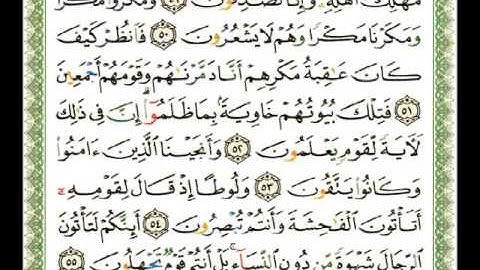 مَهْلِكَ أَهْلِهِۦ وَإِنَّا لَصَٰدِقُونَ ٤٩ وَمَكَرُوا۟ مَكْرًا
وَمَكَرْنَا مَكْرًا وَهُمْ لَا يَشْعُرُونَ ٥٠ فَٱنظُرْ كَيْفَ
كَانَ عَٰقِبَةُ مَكْرِهِمْ أَنَّا دَمَّرْنَٰهُمْ وَقَوْمَهُمْ أَجْمَعِينَ
٥١ فَتِلْكَ بُيُوتُهُمْ خَاوِيَةًۢ بِمَا ظَلَمُوٓا۟ ۗ إِنَّ فِى ذَٰلِكَ
لَءَايَةً لِّقَوْمٍ يَعْلَمُونَ ٥٢ وَأَنجَيْنَا ٱلَّذِينَ ءَامَنُوا۟
وَكَانُوا۟ يَتَّقُونَ ٥٣ وَلُوطًا إِذْ قَالَ لِقَوْمِهِۦٓ
أَتَأْتُونَ ٱلْفَٰحِشَةَ وَأَنتُمْ تُبْصِرُونَ ٥٤ أَئِنَّكُمْ لَتَأْتُونَ
ٱلرِّجَالَ شَهْوَةً مِّن دُونِ ٱلنِّسَآءِ ۚ بَلْ أَنتُمْ قَوْمٌ تَجْهَلُونَ ٥٥